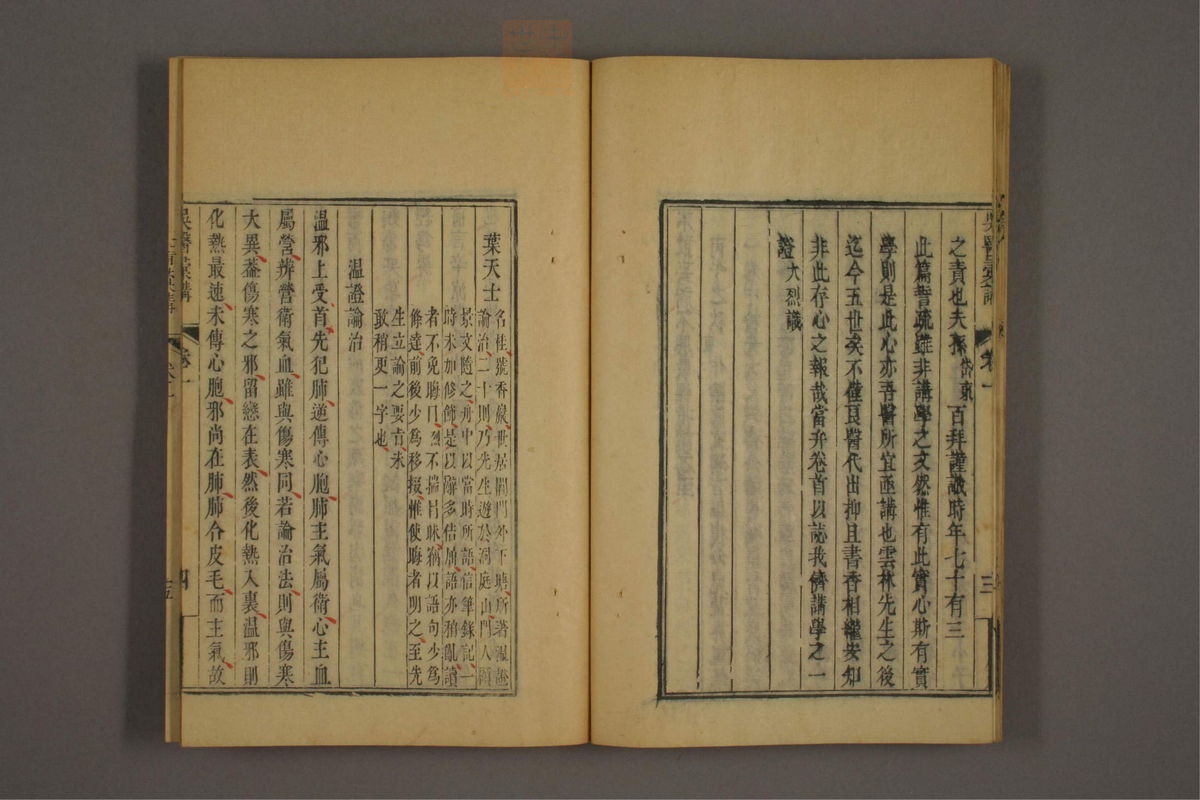 之責也夫孫岱東百拜謹識時年七十有三
此篇誓疏雖非講學之文然惟有此實心斯有實
學則是此心亦吾醫所宜亟講也雲林先生之後
迄今五世矣不僅良醫代出抑且書香相繼安知
非此存心之報哉當弁卷首以誌我儕講學之一
證大烈識
卷一
三
葉天士
名桂號香巖世居閶門外下塘所著溫證
論治二十則乃先生遊於洞庭山門人顧
景文隨之舟中以當時所語信筆錄記一
時未加修飾是以辭多佶屈語亦稍亂讀
者不免晦目烈不揣冒昧竊以語句少為
條達前後少為移掇惟使晦者明之至先
生立論之要旨未
敢稍更一字也
溫證論治
溫邪上受首先犯肺逆傳心胞肺主氣屬衛心主血
屬營辨營衛氣血雖與傷寒同若論治法則與傷寒
大異蓋傷寒之邪留戀在表然後化熱入裏溫邪則
化熱最速未傳心胞邪尚在肺肺合皮毛而主氣故
吳醫彙講
卷一
四